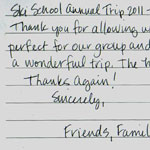 Ski School Annual Trip 2011 -
Thank you for allowing u
perfect for our group and
a wonderful trip. The h
Thanks Again!
Sincerely,
Friends, Famil